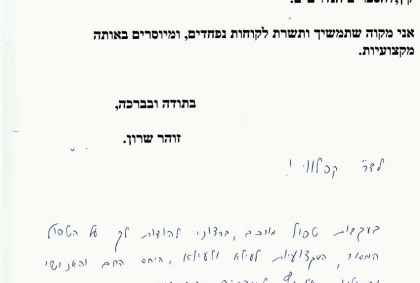 אני מקוה שתמשיך ותשרת לקוחות נפחדים, ומיוסרים באותה
מקצועיות.
בתודה ובברכה,
זוהר שרון.
לדר' קפלווי !
בעקבות טפול מורכב, ברצוני להודות לך על הטפול
המסור, המקצועיות לעילא ולעילא, היחס החם והאנושי